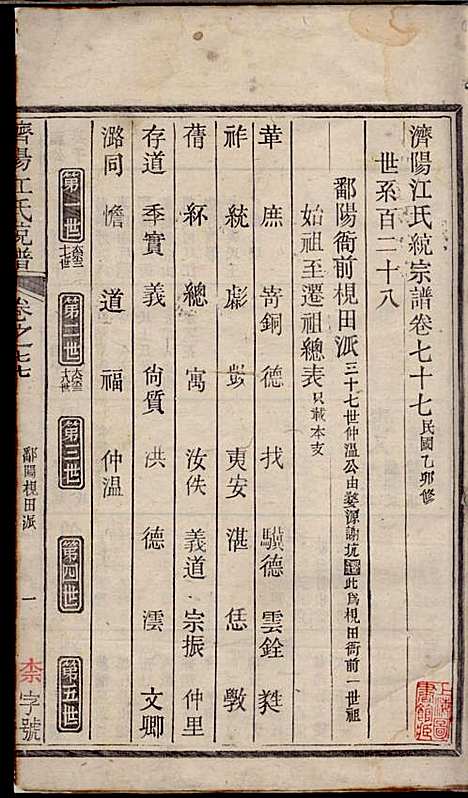 濟陽江氏統宗譜卷七十七民國乙卯修
世系百二十八
鄱陽衙前梘田派三十七世仲溫公由婺源謝坑遷此爲梘田衙前一世祖
始祖至遷祖總表只載本支
華 庶 嵜銅 德 找 驥德 雲銓 蕤
祚 統 彪 彭 夷安 湛 恁 斆
蒨 紑 總 寓 汝佚 義道 宗振 仲里
存道 季實 義 尙質 洪 德 澐 文卿
潞同 德 道 福 仲溫
第一世
第二世
第三世
第四世
第五世
濟陽江氏統譜
卷之七七
鄱陽梘田派
一
柰字號
上海圖書館藏